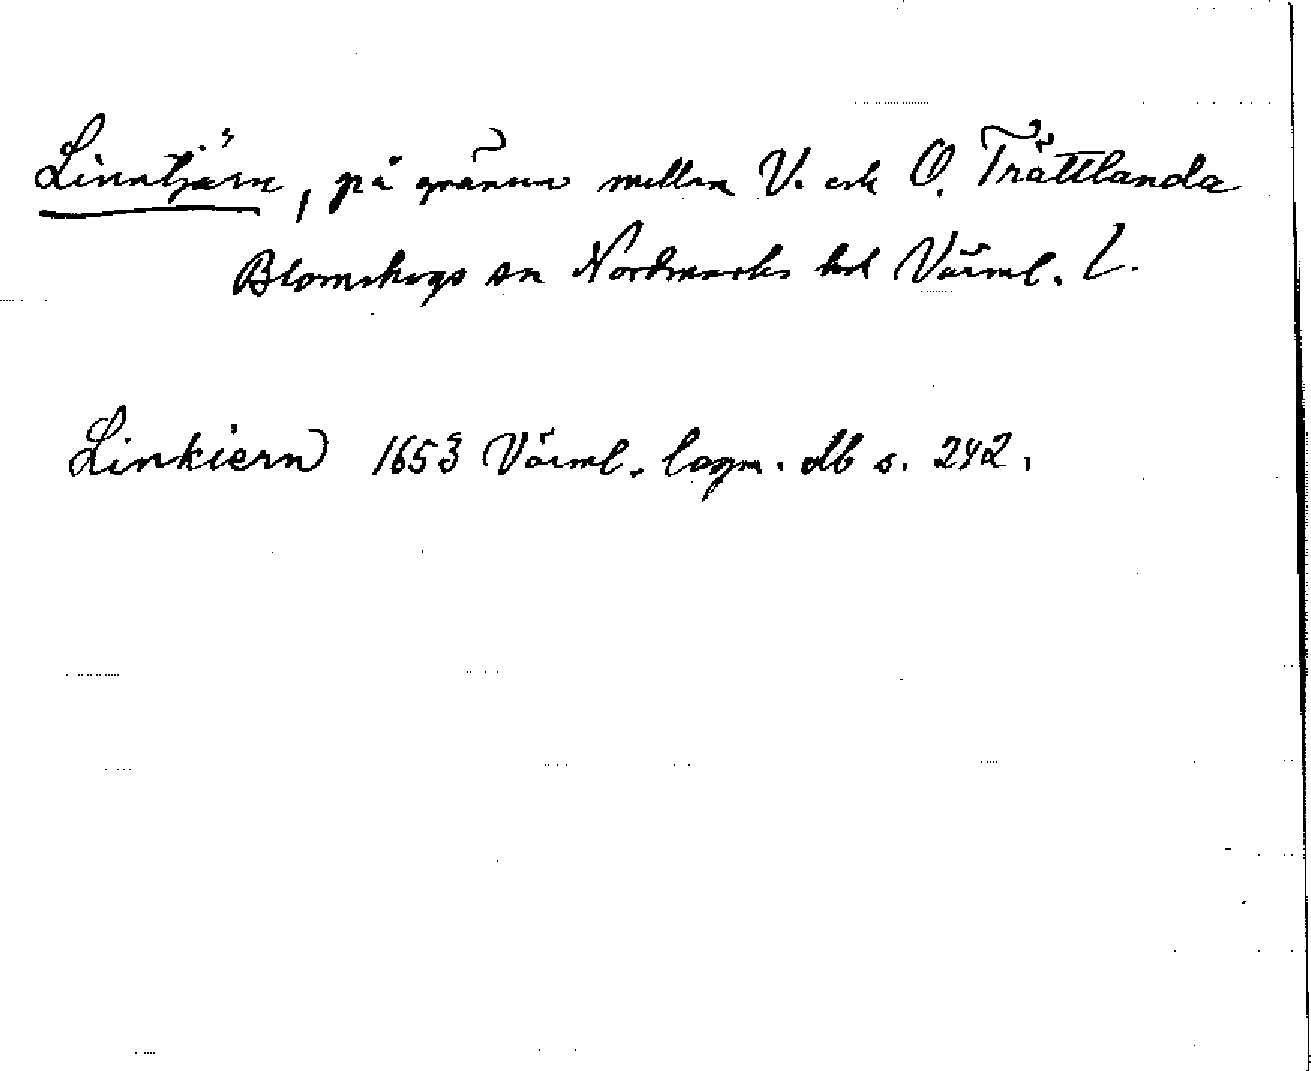 Linntjärn, på gränsen mellan V. och Ö. Trättlanda
Blomskogs sn Nordmarks hd Värml. l.
Linkiern 1653 Värml. lagm. db s. 242.